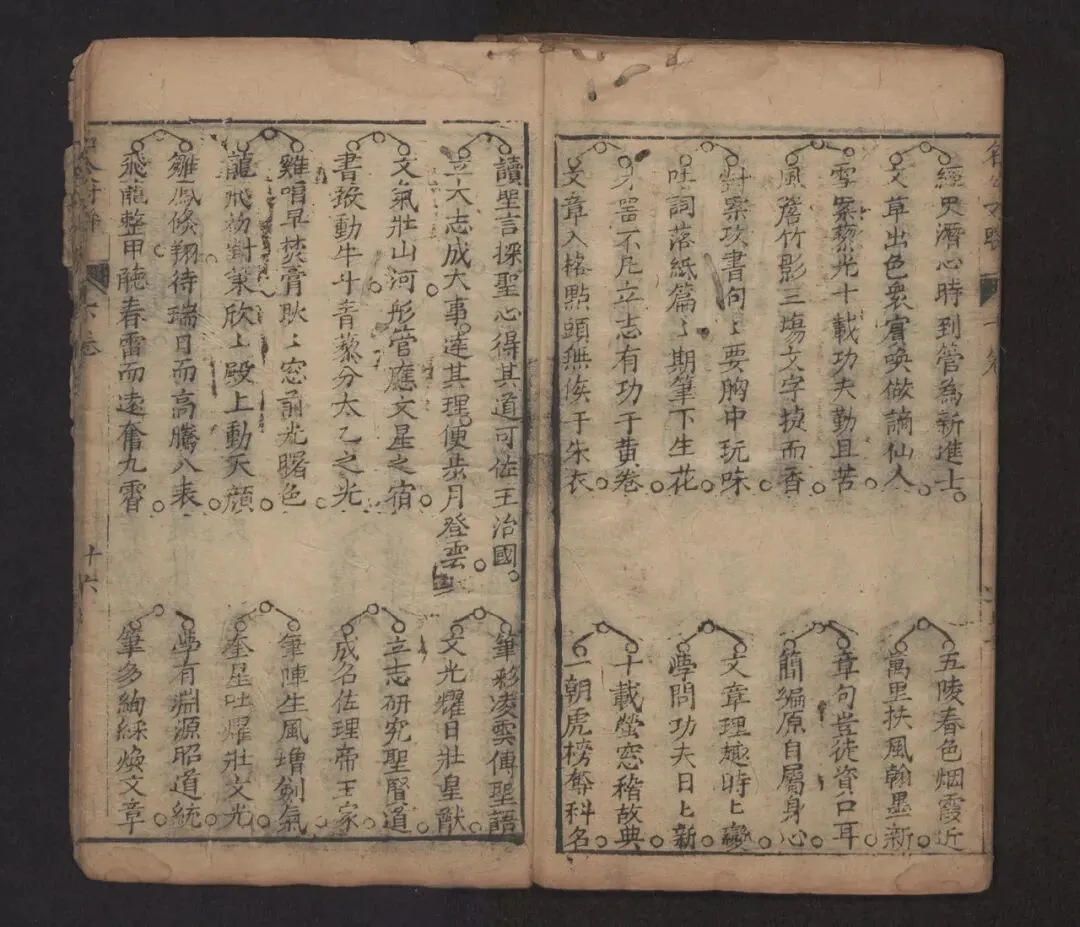 經史潛心時到管為新進士
文章出色衆賓喚做謫仙人
雪案藜光十載功夫勤且苦
風簷竹影三場文字捷而香
對案攻書句〻要胸中玩味
吐詞落紙篇〻期筆下生花
才器不凡立志有功于黄卷
文章入格點頭無俟于朱衣
五陵春色烟霞近
萬里扶風翰墨新
章句豈徒資口耳
簡編原自屬身心
文章理趣時〻變
學問功夫日〻新
十載螢窓稽故典
一朝虎榜奪科名
讀聖言探聖心得其道可佐王治國
立大志成大事達其理便步月登雲
文氣壯山河彤管應文星之宿
書聲動牛斗青藜分太乙之光
雞唱早焚膏耿〻窓前光曙色
龍飛初對策欣〻殿上動天顔
雛鳳倏翔待瑞日而高騰八表
飛龍整甲聽春雷而遠奮九霄
筆彩凌雲傳聖語
文光耀日壯皇猷
立志研究聖賢道
成名佐理帝王家
筆陣生風增劍氣
奎星吐燿壯文光
學有淵源昭道統
筆多絢綵煥文章
六卷
十六